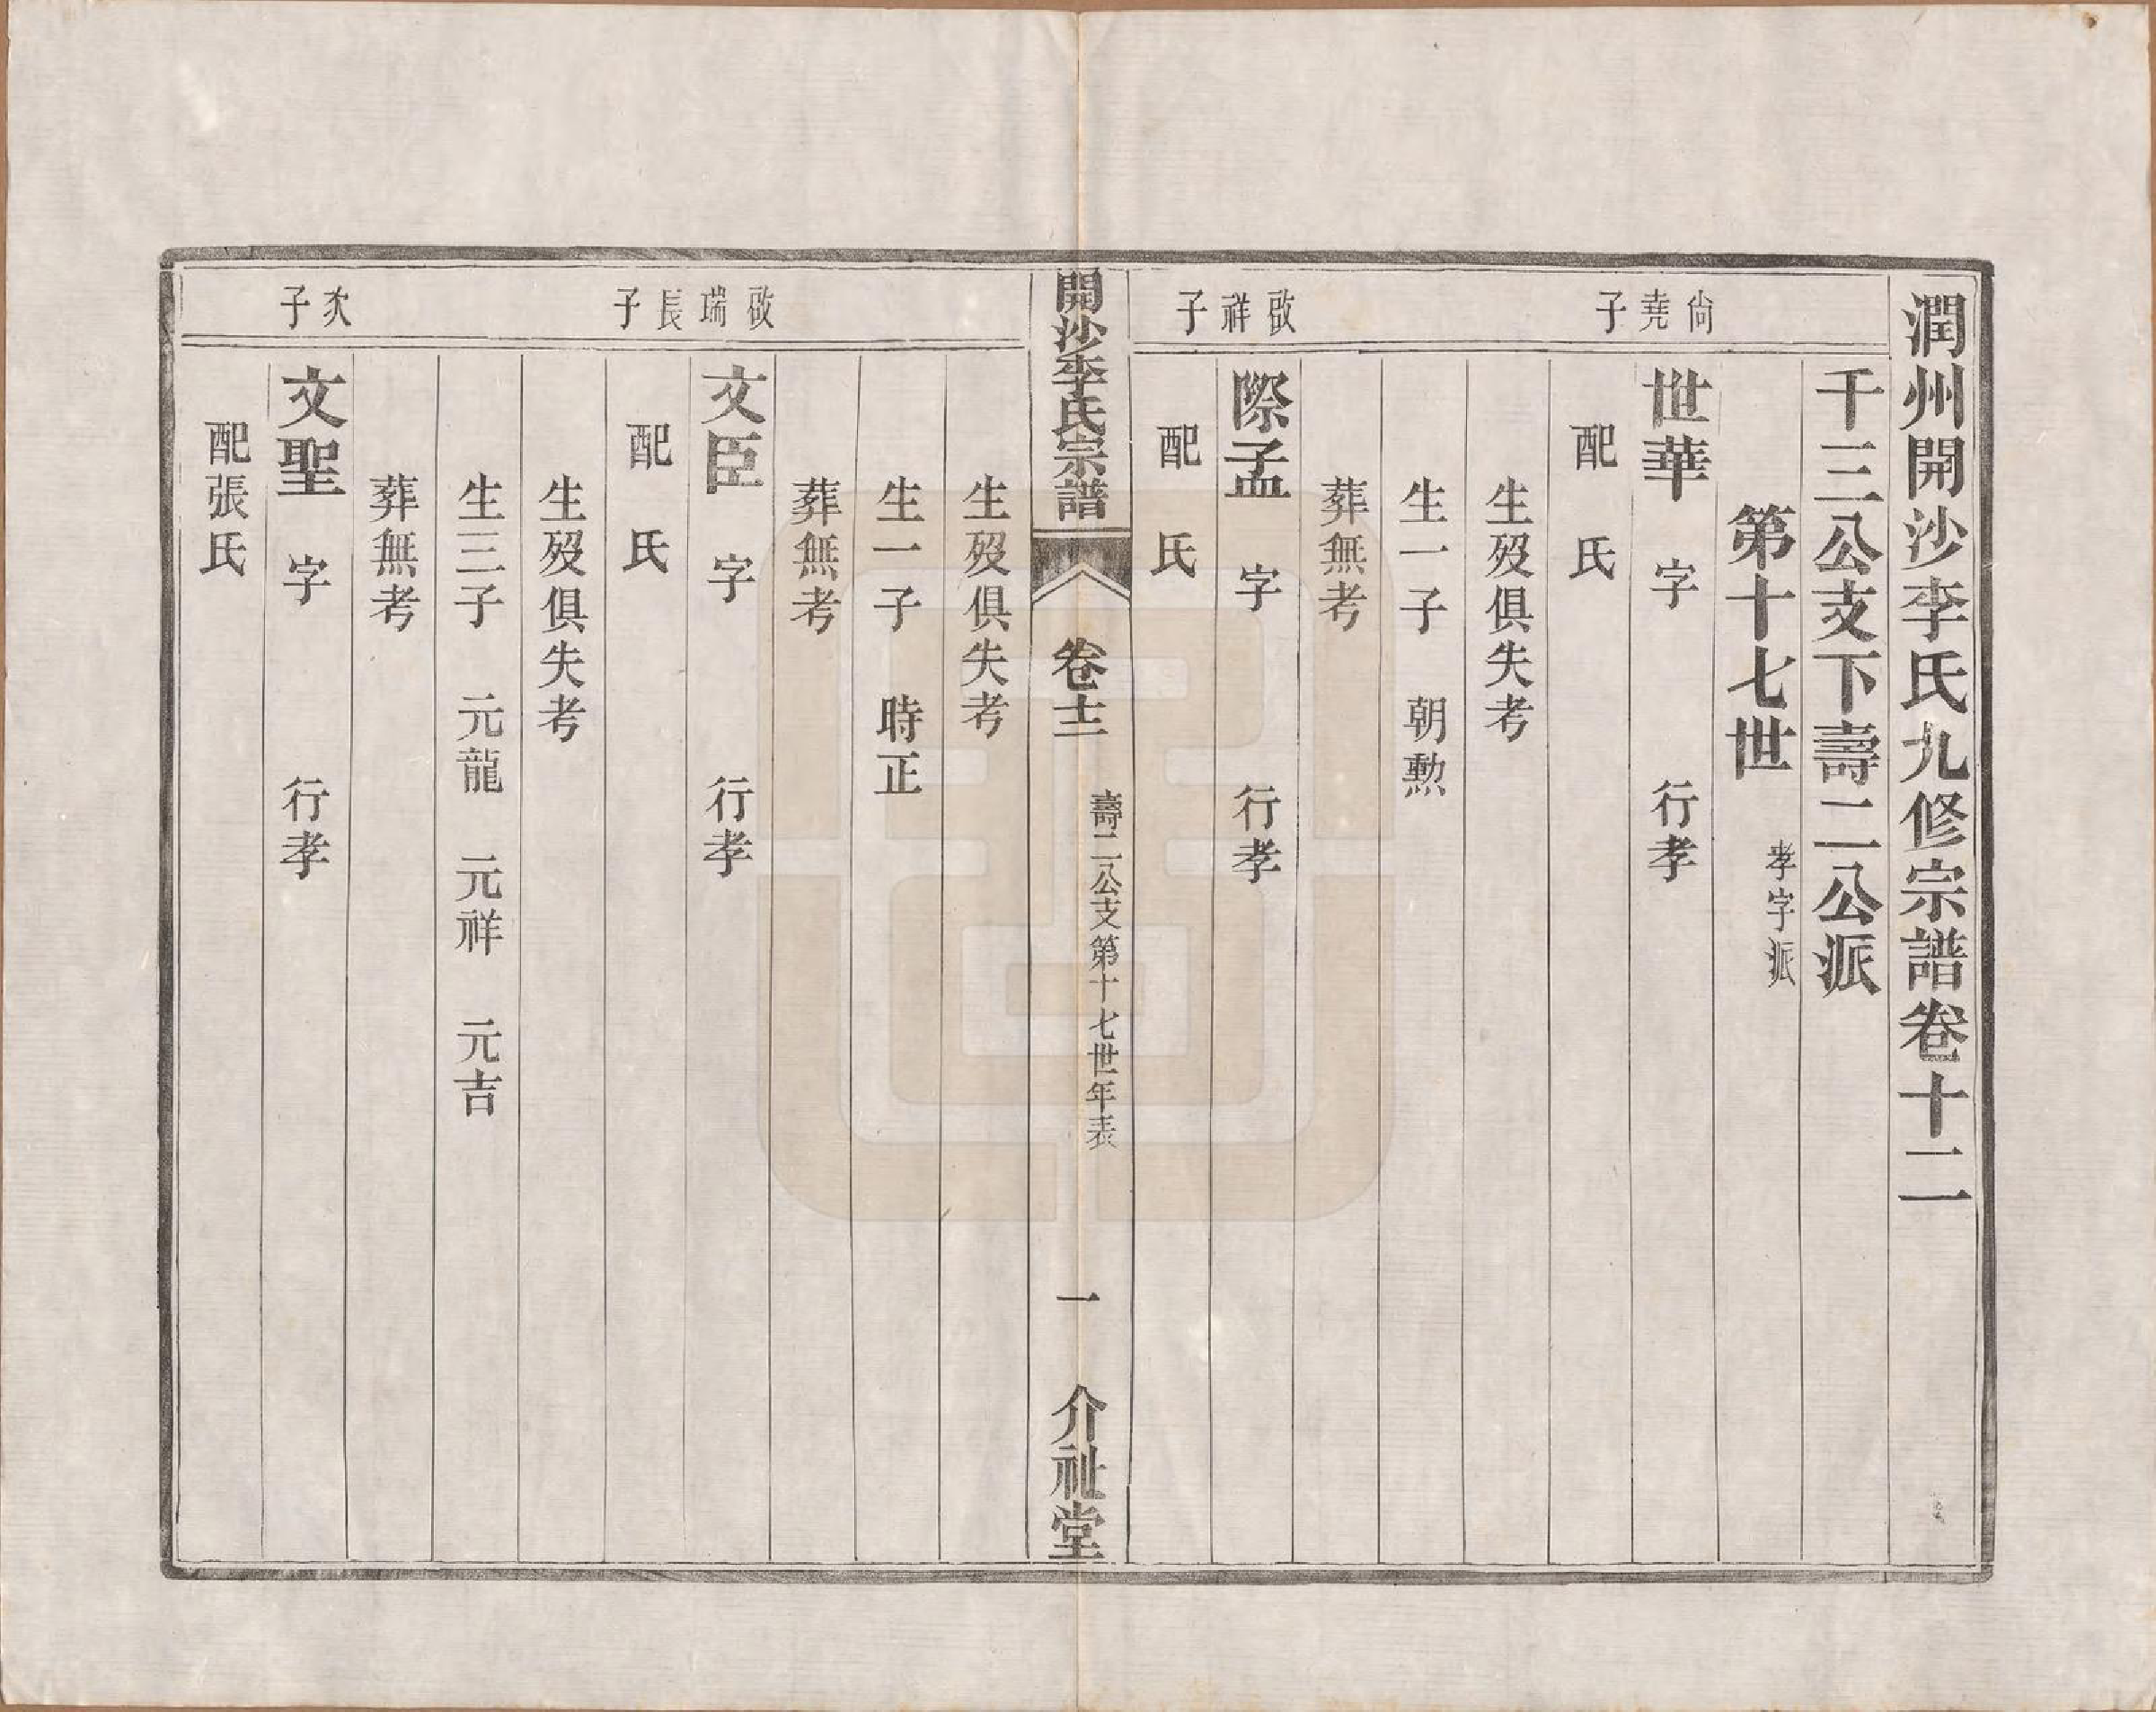 潤州開沙李氏九修宗譜卷十二
千三公支下壽二公派
第十七世 孝字派
尙堯子
世華 字 行孝
配 氏
生歿俱失考
生一子 朝勲
葬無考
啟祥子
際孟 字 行孝
配 氏
開沙李氏宗譜 卷十二 壽二公支第十七世年表 一 介祉堂
生歿俱失考
生一子 時正
葬無考
啟瑞長子
文臣 字 行孝
配 氏
生歿俱失考
生三子 元龍 元祥 元吉
葬無考
次子
文聖 字 行孝
配張氏